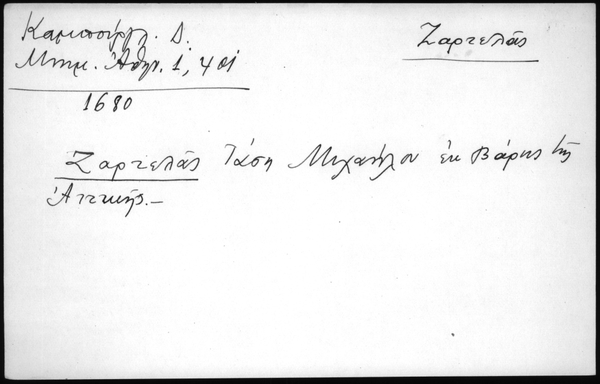 Καμπούρογλ. Δ.
Μνημ. Ἀθην. 1, 401
Ζαρτελᾶς
1680
Ζαρτελᾶς Τάση Μιχαήλου ἐκ Βάρης τῆς
Ἀττικῆς.—